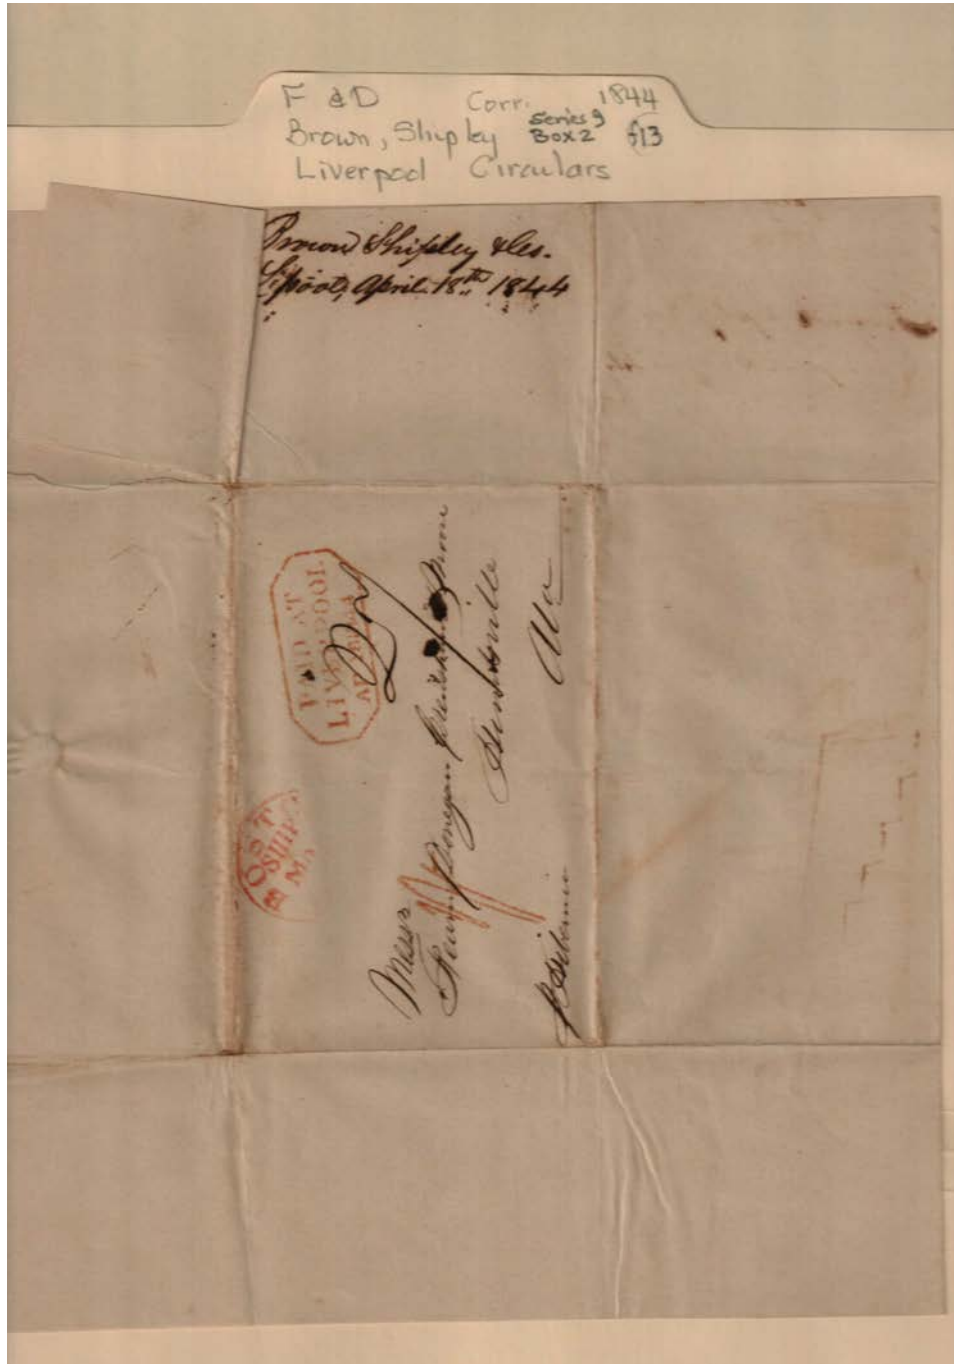 F & D Corr. 1844
Brown, Shipley Series 9 Box 2 f13
Liverpool Circulars
Brown Shipley & Co.
L'pool, April 18th 1844
PAID AT
LIVERPOOL
BOST
SHIP
Messrs
Donegan
Huntsville
Ala
p Hibernia